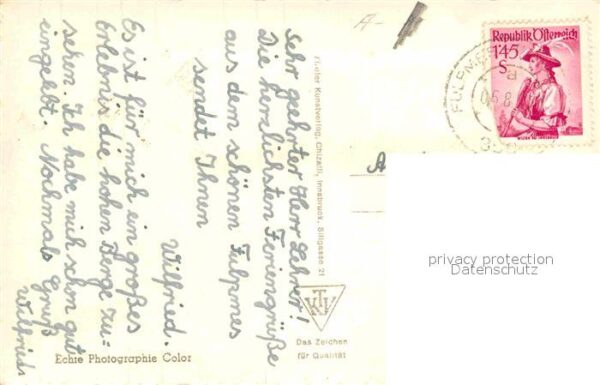 Sehr geehrter Herr Lehrer!
Die herzlichsten Feriengrüße
aus dem schönen Fulpmes
sendet Ihnen
Wilfried.
Es ist für mich ein großes
Erlebnis die hohen Berge zu
sehen. Ich habe mich schon gut
eingelebt. Nochmals Gruß
Wilfried
Echte Photographie Color
Tiroler Kunstverlag, Chizzalli, Innsbruck, Sillgasse 21
TKV
Das Zeichen
für Qualität
A-
A
Republik Österreich
1.45
S
FULPMES
a
privacy protection
Datenschutz